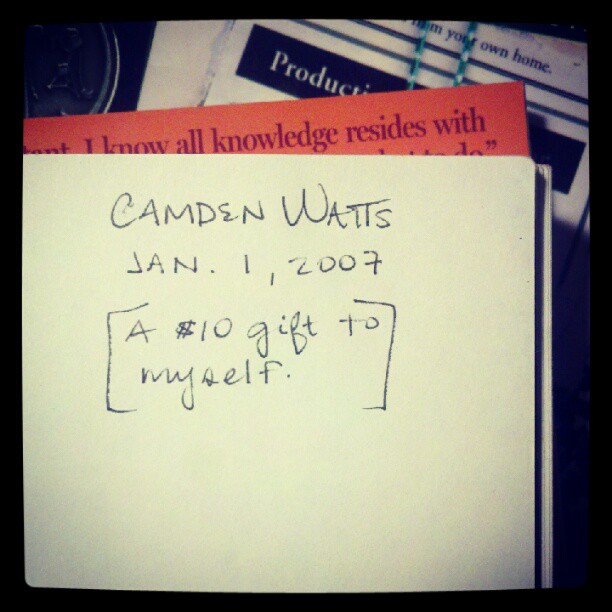 from your own home.
Producti
tant. I know all knowledge resides with
to do"
CAMDEN WATTS
JAN. 1, 2007
[A $10 gift to
myself.]